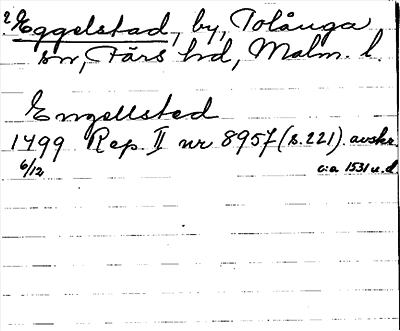 2 Eggelstad, by, Tolånga
sn, Färs hd, Malm. l.
Engellsted
1499 Rep. II nr 8957 (s. 221). avskr.
6/12 c:a 1531 u.d.